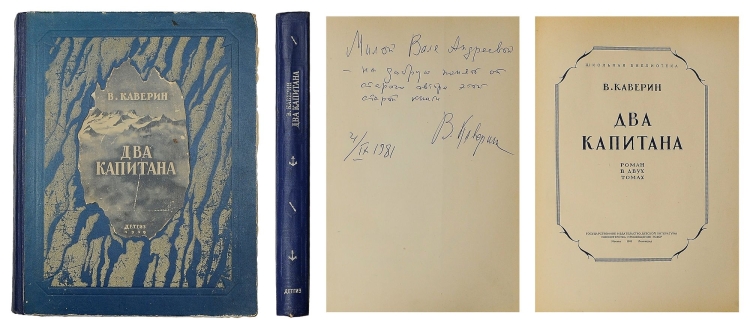 В. КАВЕРИН
ДВА
КАПИТАНА
ДЕТГИЗ
В. КАВЕРИН
ДВА КАПИТАНА
ДЕТГИЗ
Милой Вале Андреевой
– на добрую память от
старого автора этой
старой книги
В. Каверин
4/IX 1981
ШКОЛЬНАЯ БИБЛИОТЕКА
В. КАВЕРИН
ДВА
КАПИТАНА
РОМАН
В ДВУХ
ТОМАХ
ГОСУДАРСТВЕННОЕ ИЗДАТЕЛЬСТВО ДЕТСКОЙ ЛИТЕРАТУРЫ
Москва Ленинград